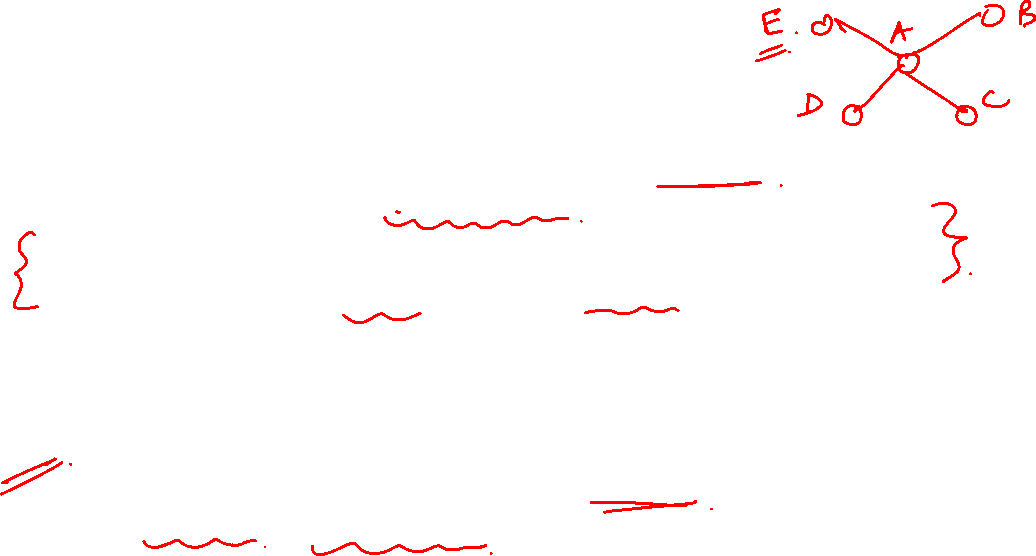 E. A B
D C
{ }